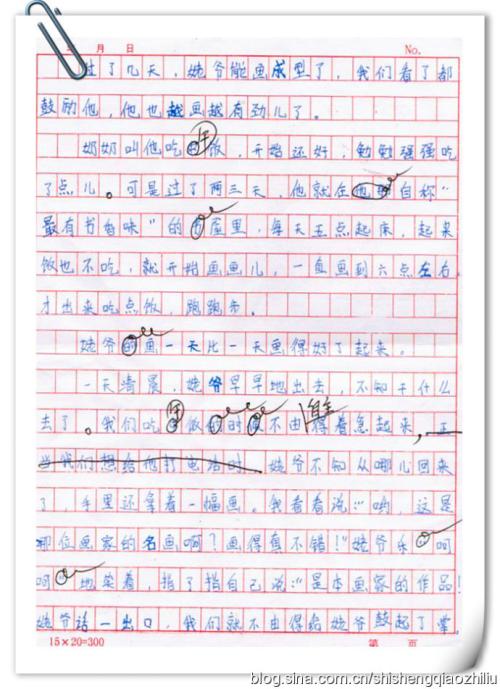 月 日 No.
过了几天，姥爷能画成型了，我们看了都
鼓励他，他也越画越有劲儿了。
奶奶叫他吃午饭，开始还好，勉勉强强吃
了点儿。可是过了两三天，他就在他自称“
最有书香味”的屋里，每天五点起床，起来
饭也不吃，就开始画画儿，一直画到六点左右
才出来吃点饭，跑跑步。
姥爷的画一天比一天画得好了起来。
一天清晨，姥爷早早地出去，不知干什么
去了。我们吃午饭的时候不由得着急起来，正
当我们想给他打电话时，姥爷不知从哪儿回来
了，手里还拿着一幅画。我看看说：“哟，这是
哪位画家的名画啊？画得真不错！”姥爷乐呵
呵地笑着，指了指自己说：“是本画家的作品！
姥爷话一出口，我们就不由得给姥爷鼓起了掌。
15×20=300 第 页
blog.sina.com.cn/shishengqiaozhiliu